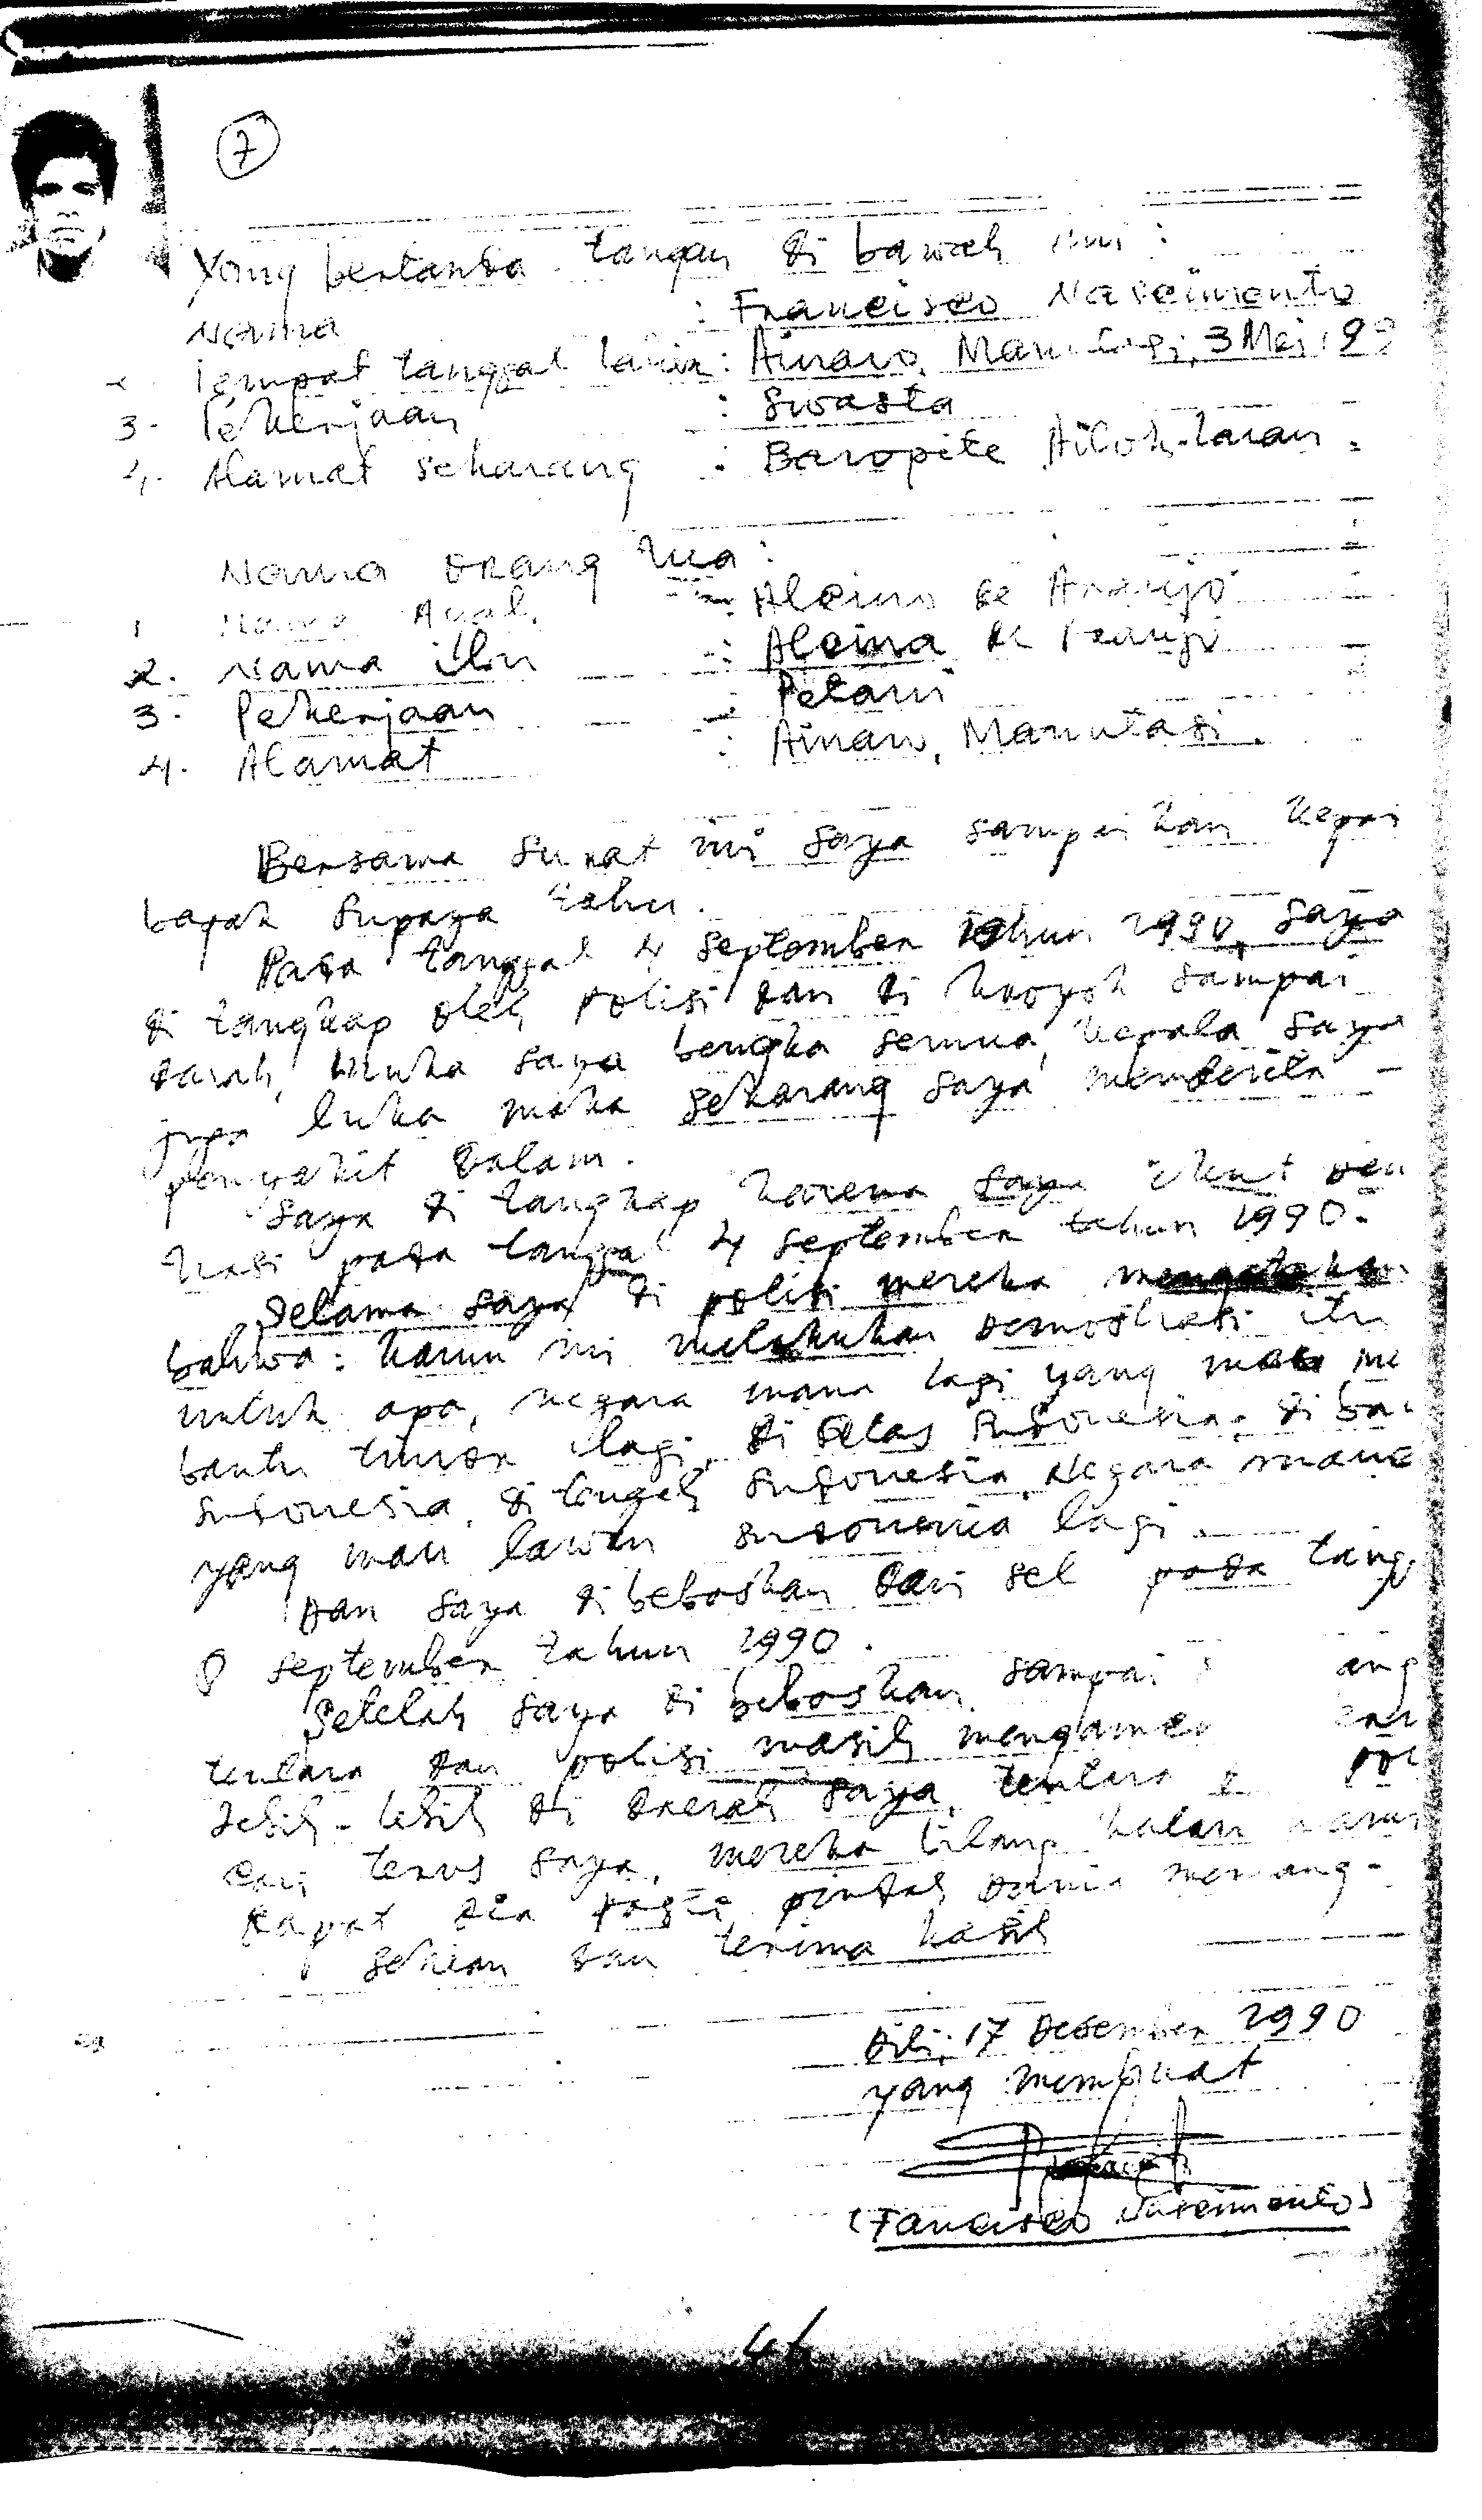 7
Yang bertanda tangan di bawah ini :
Nama : Francisco Nascimento
Tempat tanggal lahir : Ainaro, 3 Mei 19
3. Pekerjaan : Swasta
4. Alamat sekarang : Baropite
Nama orang tua :
1 Nama Ayah : Alcino de Araujo
2. Nama ibu : Alcina de
3. Pekerjaan : Petani
4. Alamat : Ainaro, Manutasi.
Bersama surat ini saya sampaikan kepa
bapak supaya tahu.
Pada tanggal 4 september tahun 1990, saya
di tangkap oleh polisi dan di kroyok sampai
darah, muka saya bengka semua, kepala saya
juga luka maka sekarang saya menderita -
penyakit dalam.
Saya di tangkap karena saya ikut dem
trasi pada tanggal 4 september tahun 1990.
Selama saya di polisi mereka mengatakan
bahwa : kamu ini melakukan demostrasi itu
untuk apa, negara mana lagi yang mau me
bantu timor lagi, di atas Indonesia, di ba
Indonesia, di tengah Indonesia, Negara mana
yang mau lawan Indonesia lagi.
Dan saya di bebaskan dari sel pada tang
8 september tahun 1990.
Setelah saya di bebaskan sampai ang
tentara dan polisi masih mengamen
lebih-lebih di daerah saya, tentara pol
cari terus saya, mereka bilang kalau kamu
dapat dia pasti pindah dunia memang.
Sekian dan terima kasih
Dili, 17 Desember 1990
yang membuat
(Fancisco Nascimento)
46